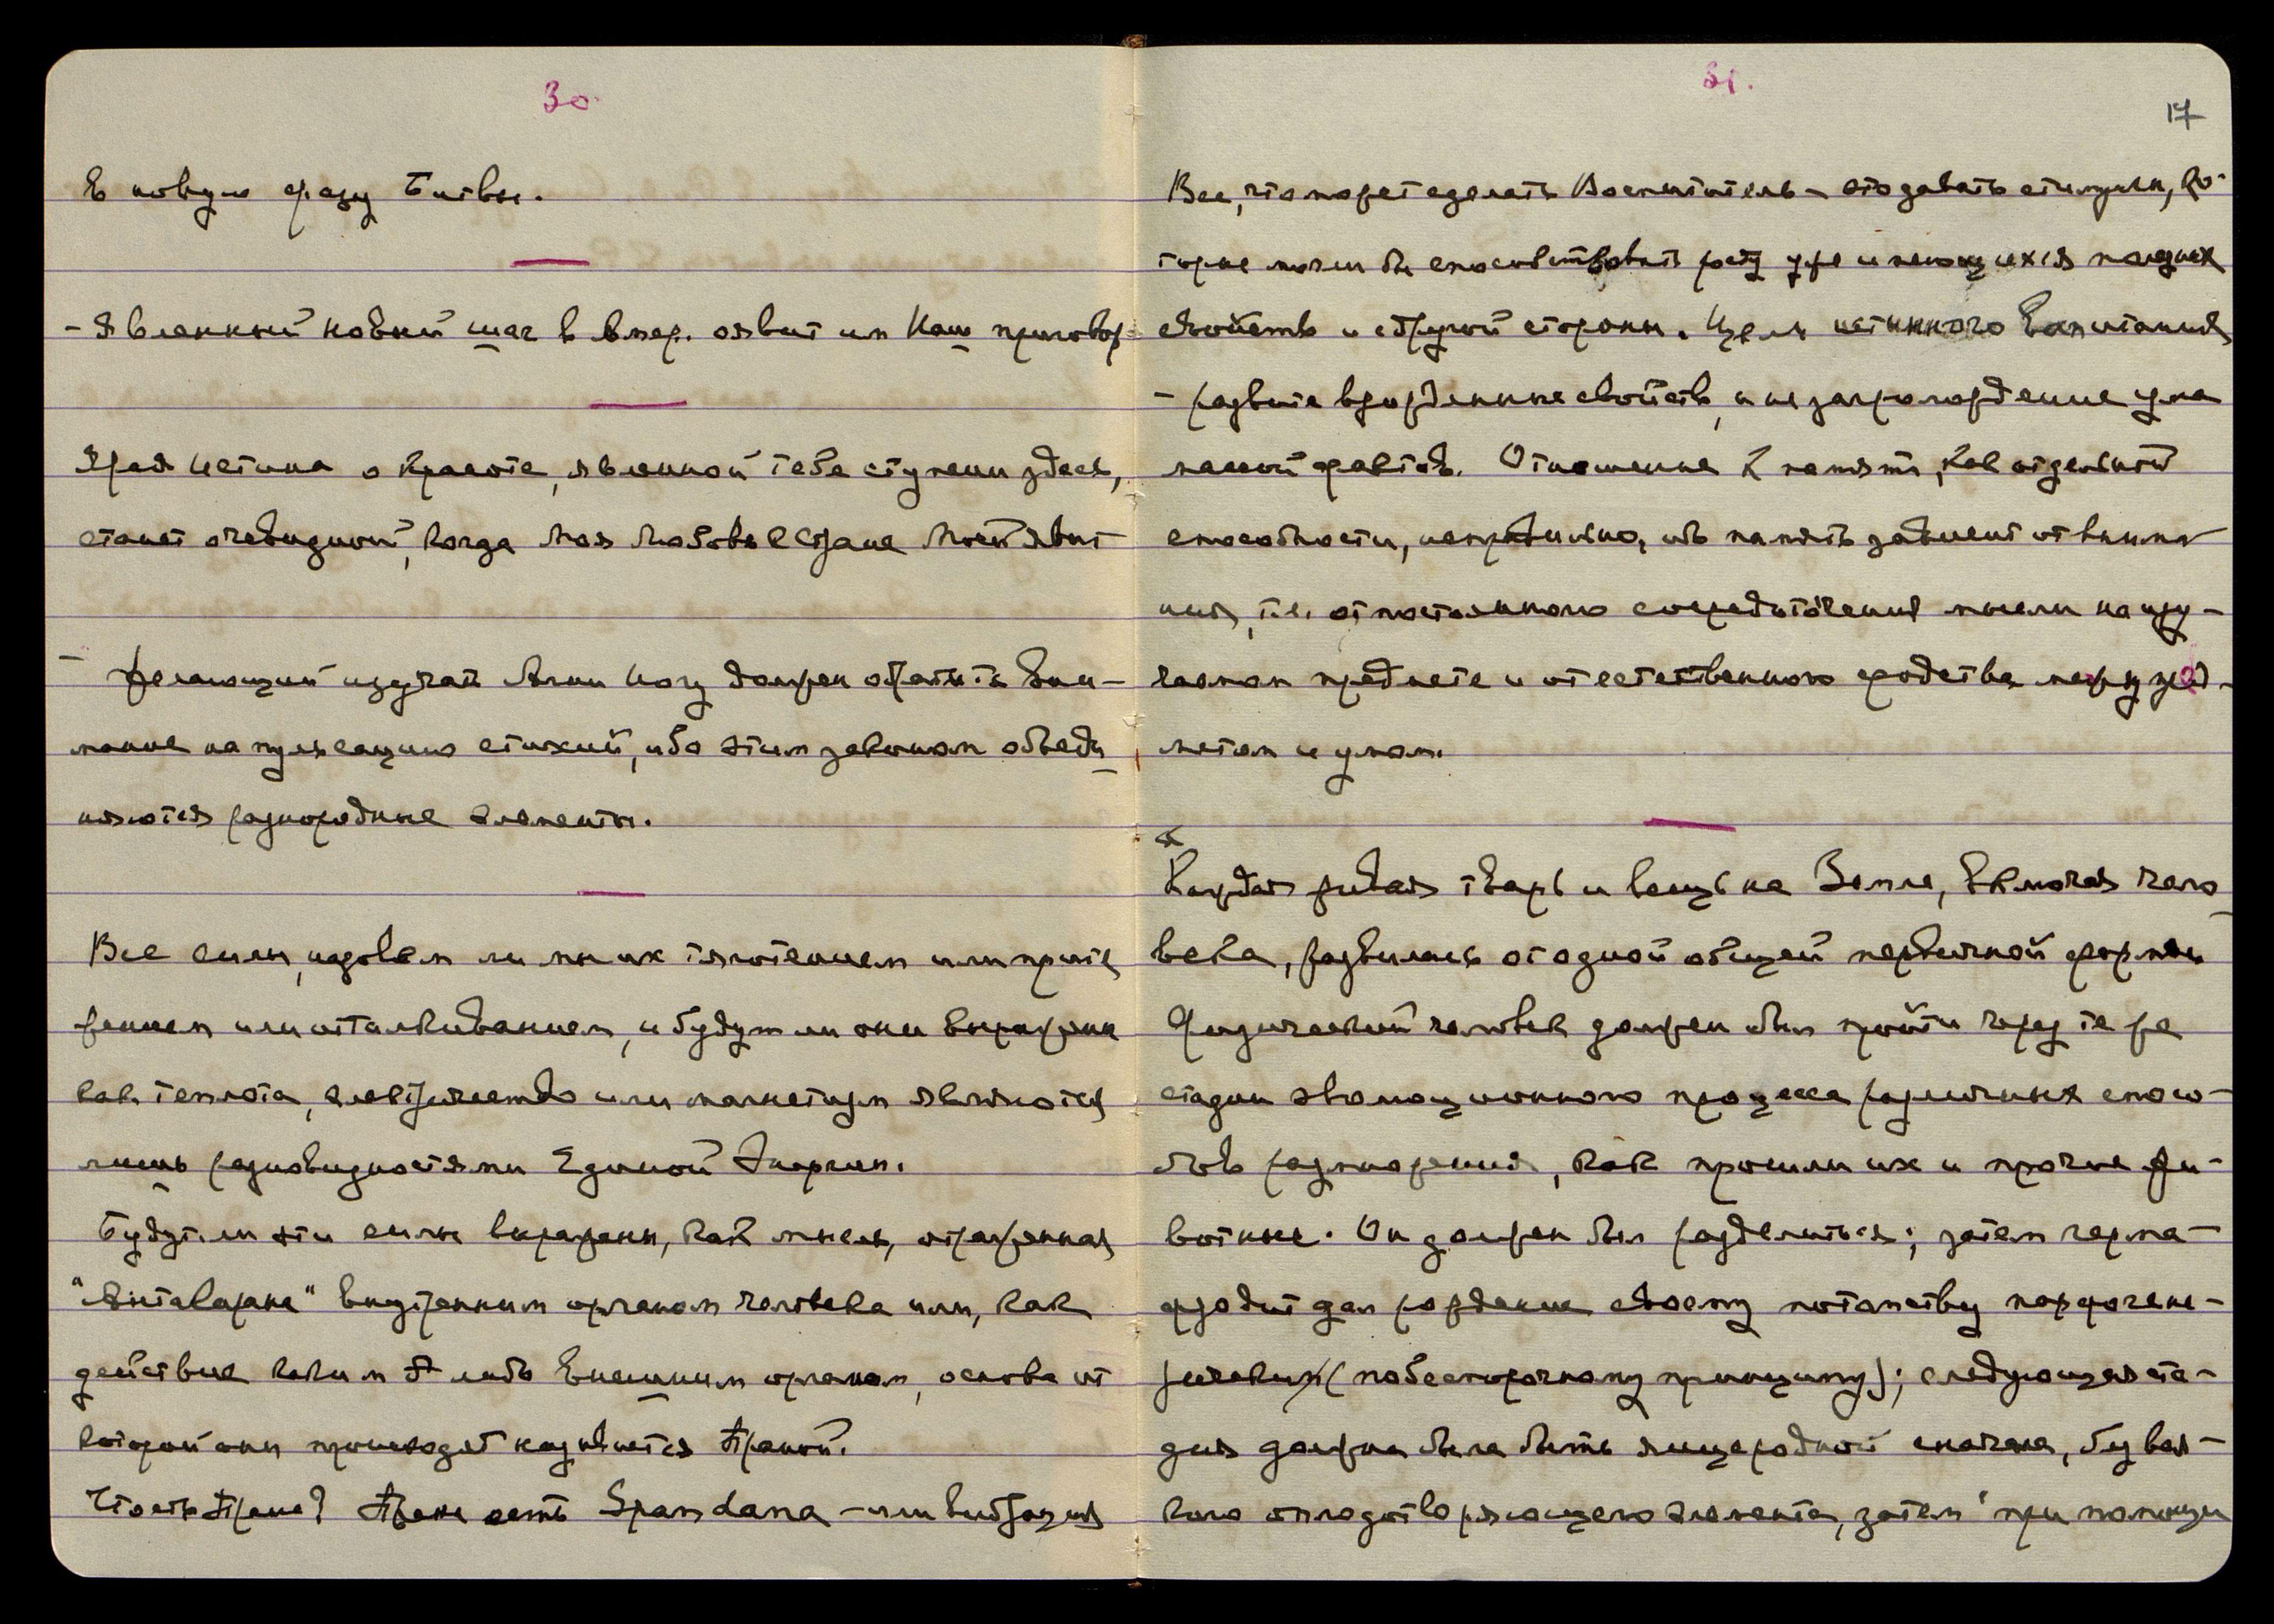 30.
в новую фазу Битвы.
- Явленный новый шаг в вмер. явит им Наш приговор
Ярая истина о красоте, явленной тебе ступени здесь,
станет очевидной, когда Моя Любовь к Стране Моей явит
- Желающий изучать Агни Йогу должен обратить вни-
мание на пульсацию стихий, ибо этим законом объеди
няются разнородные элементы.
Все силы, назовем ли мы их тяготением или притя
жением или отталкиванием, и будут ли они выражены
как теплота, электричество или магнетизм являются
лишь разновидностями Единой Энергии.
Будут ли эти силы выражены, как мысль, отраженная
"Антакарана" внутренним органом человека или, как
действие каким либо внешним органом, основа от
которой они происходят называется Праной.
Что есть Прана? Прана есть Spandana - или вибрация
31.
17
Все, что может сделать Воспитатель - это давать стимулы, ко-
торые могли бы способствовать росту уже имеющихся налицо
свойств и с другой стороны. Цель истинного воспитания
- развить врожденные свойства, а не загромождение ума
массой фактов. Отношение к памяти, как отдельной
способности, неправильно, ибо память зависит от внима
ния, т.е. от постоянного сосредоточения мысли на изу-
чаемом предмете и от естественного сродства между пред-
метом и умом.
Каждая живая тварь и вещь на Земле, включая чело
века, развились от одной общей первичной формы
Физический человек должен был пройти через те же
стадии эволюционного процесса различных спосо-
бов размножения, как прошли их и прочие жи-
вотные. Он должен был разделиться; затем герма-
фродит дал рождение своему потомству партогене-
тически (по беспорочному принципу); следующая ста-
дия должна была быть яйцеродной сначала, без вся-
кого оплодотворяющего элемента, затем "при помощи